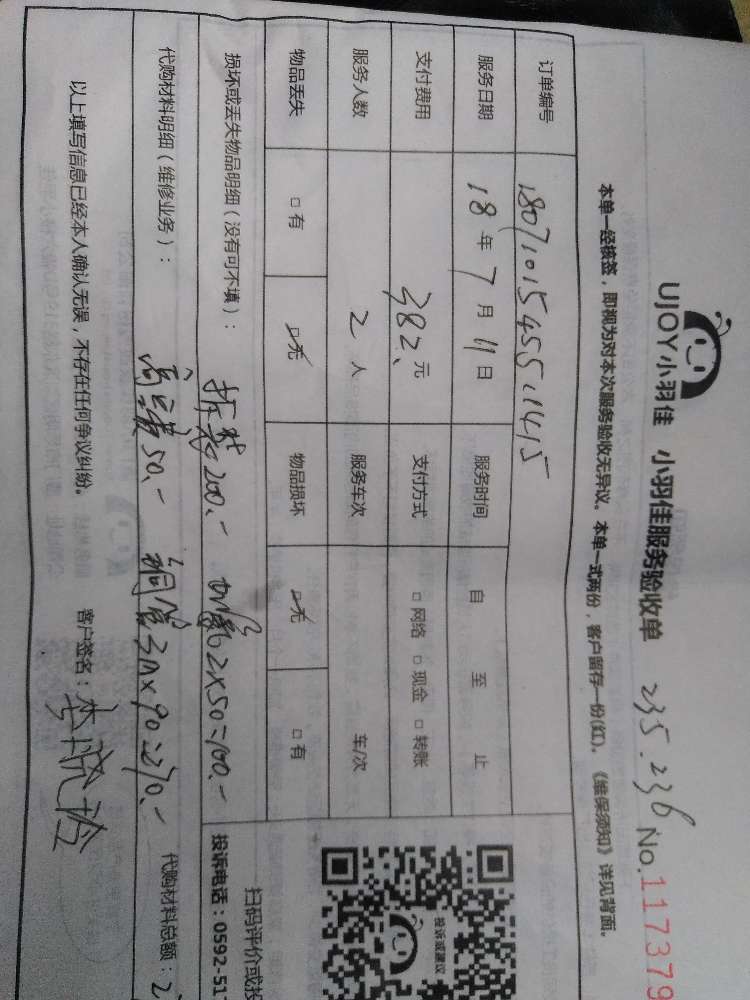 UJOY小羽佳 小羽佳服务验收单 235.236 No.117379
本单一经核签，即视为对本次服务验收无异议。本单一式两份，客户留存一份(红)。《维保须知》详见背面。
订单编号 18071015455511415
服务日期 18年7月11日 服务时间 自 至 止
支付费用 382、元 支付方式 □网络 □现金 □转账
服务人数 2人 服务车次 车/次
物品丢失 □有 ☑无 物品损坏 ☑无 □有
损坏或丢失物品明细（没有可不填）： 拆装200.- 加氟2×50=100.-
代购材料明细（维修业务）： 高空费50.- 铜管3m×90=270.- 代购材料总额：
以上填写信息已经本人确认无误，不存在任何争议纠纷。 客户签名：
投诉或建议
扫码评价或投
投诉电话：0592-51